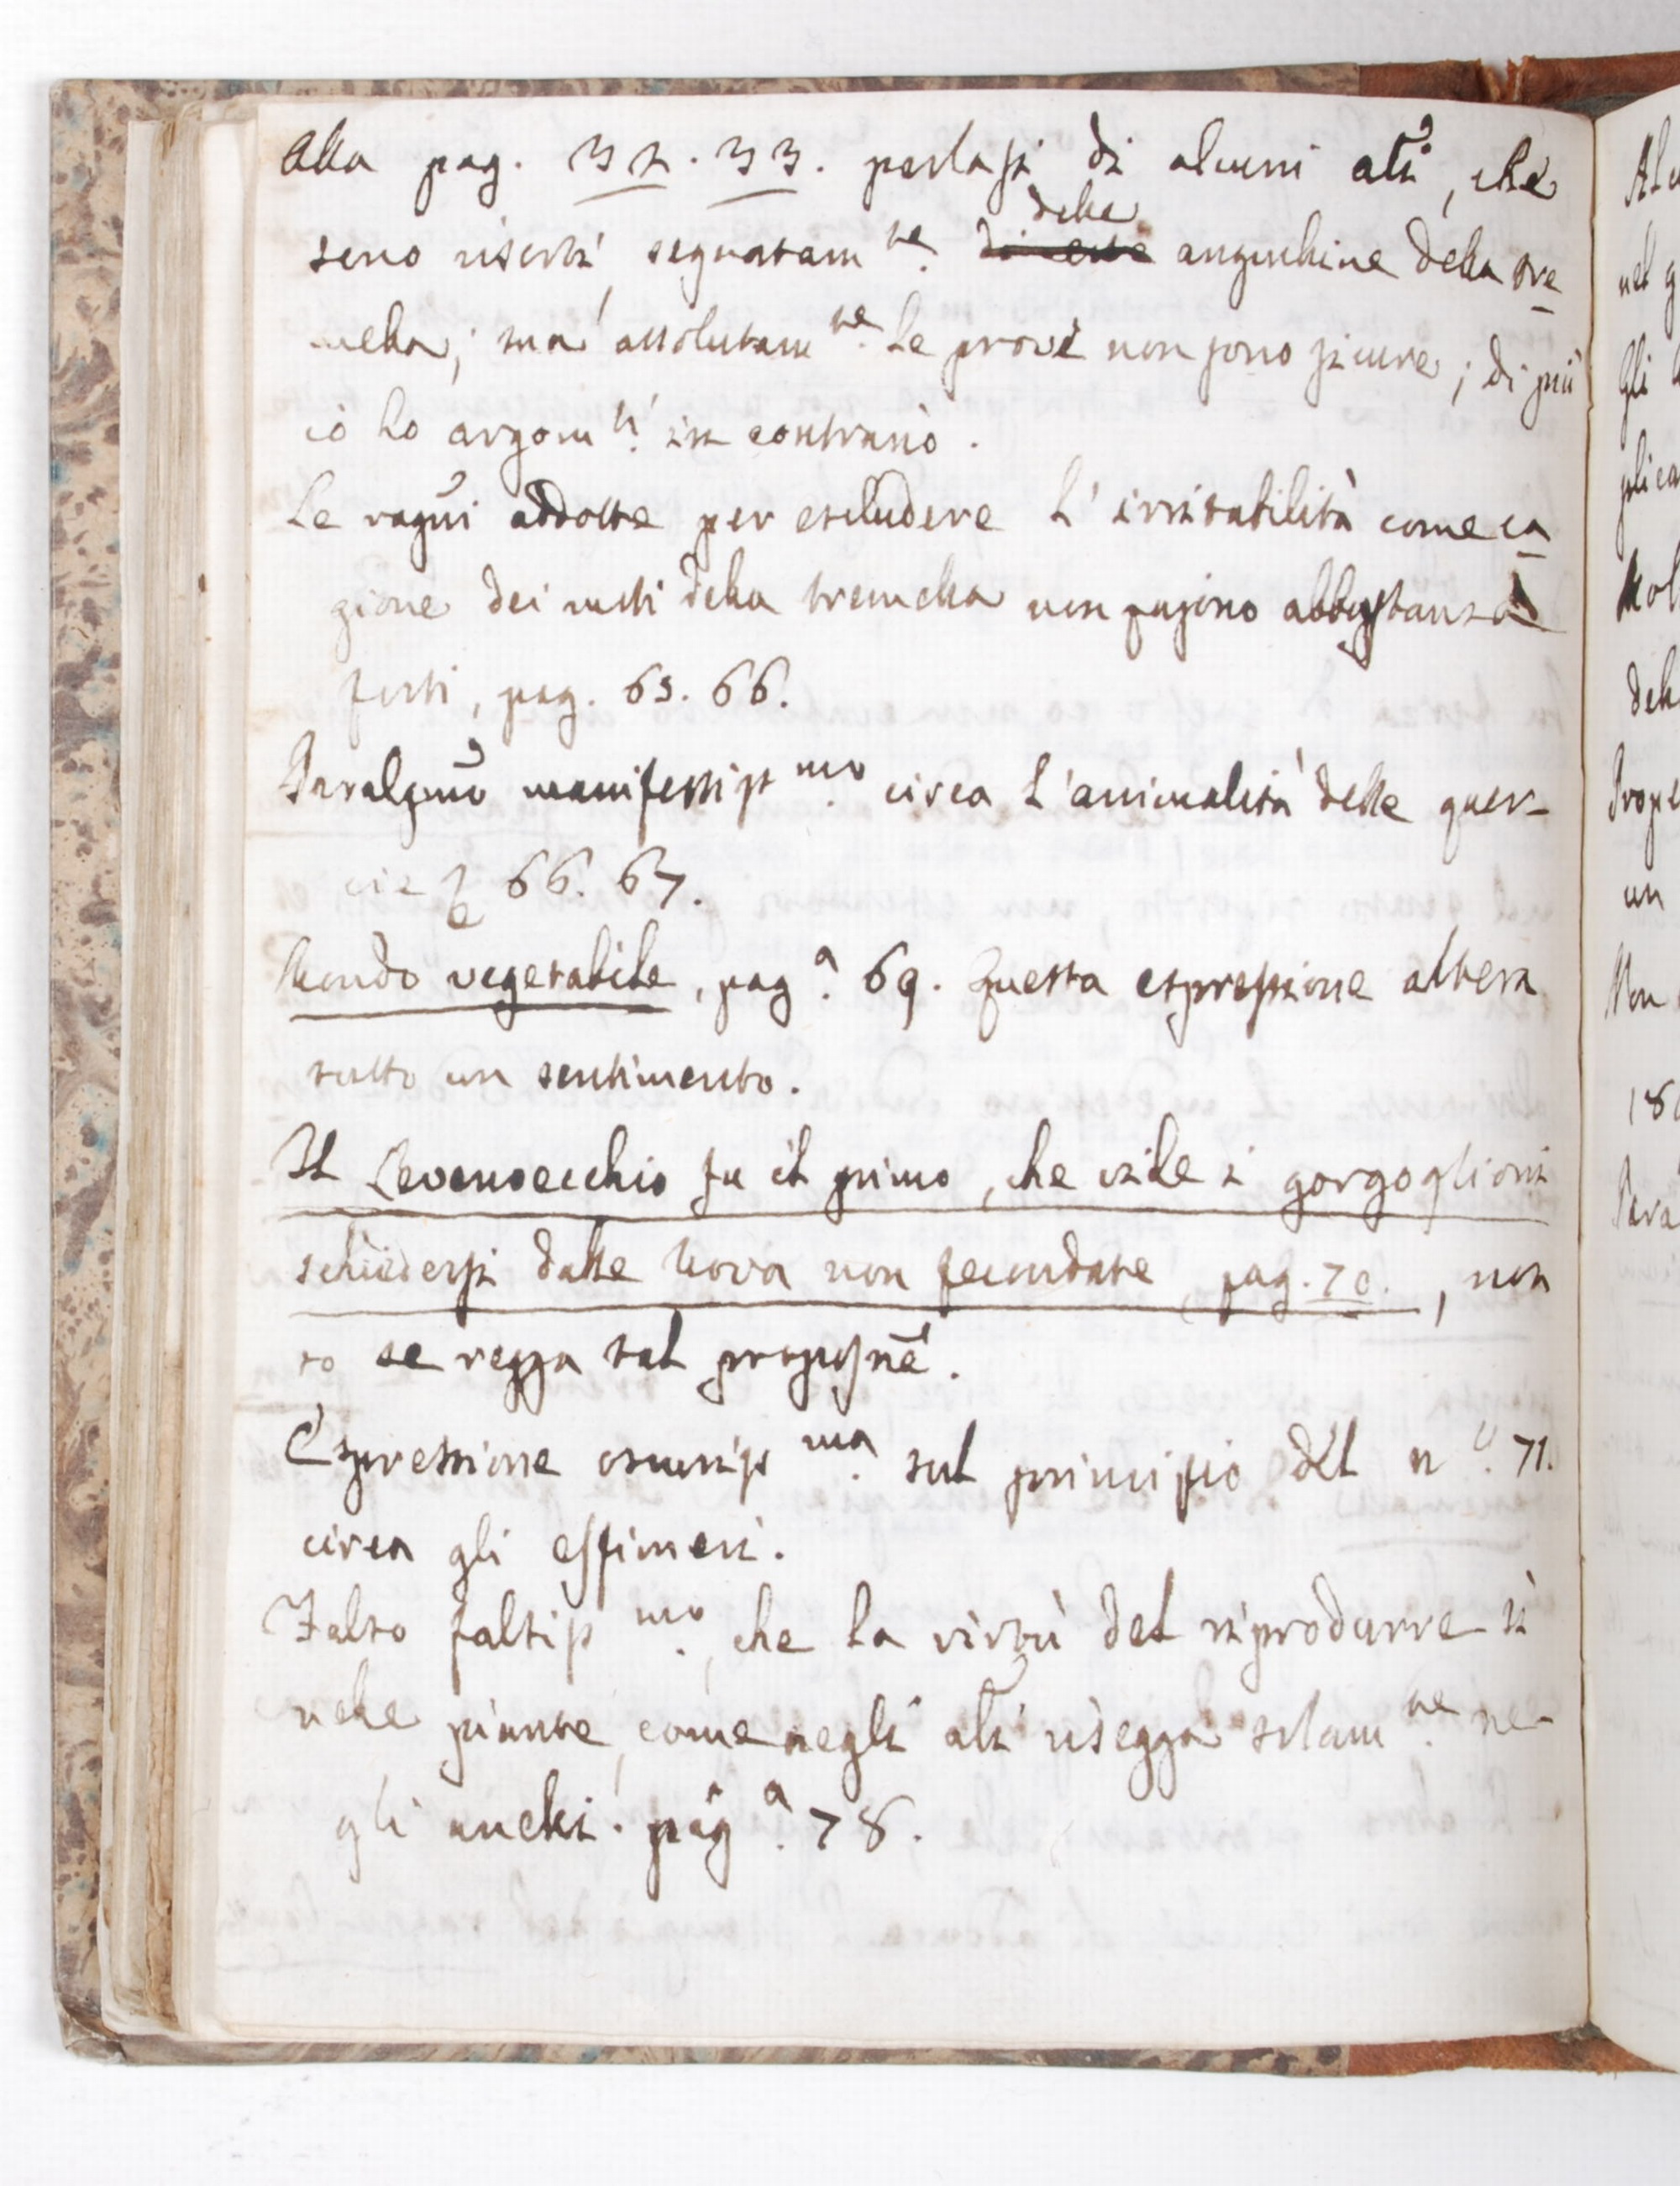 Alla pag. 32. 33. parlasi di alcuni ali, che
sono risorti, segnatam.te di este delle anguilline della tre
mella; ma assolutam.te le prove non sono sicure; di più
io ho argom.ti in contrario.
Le ragni addotte per escludere l'irritabilità come ca
gione dei moti della tremella non pajono abbastanza
forti, pag. 65. 66.
Paralgmo manifestiss.mo circa l'animalità delle quer-
cie 66. 67.
Mondo vegetabile, pag.a 69. Questa espressione altera
tutto un sentimento.
Il Levenoecchio fu il primo, che vide i gorgoglioni
schiudersi dalle uova non fecondate pag. 70., non
so se regga tal proposne.
Espressione oscuriss.ma sul principio del n.o 71.
circa gli effimeri.
Falso falsiss.mo, che la virtù del riprodurre si
nelle piante, come negli ali risegga solam.te ne-
gli anelli. pag.a 78.